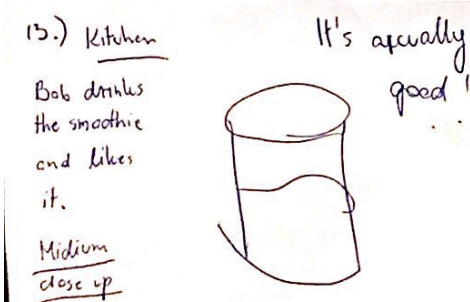 13.) Kitchen
Bob drinks
the smoothie
and likes
it.
Midium
close up
It's apcually
good!
...